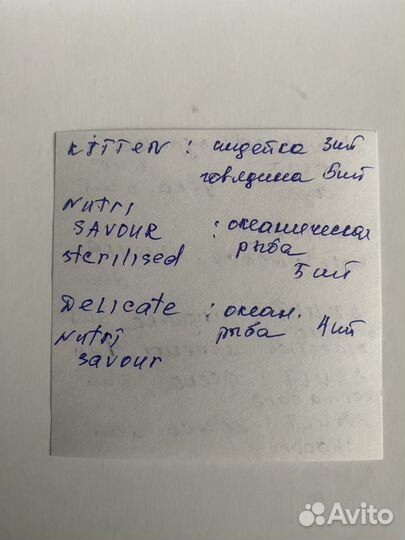 KITTEN : индейка 3шт
говядина 5шт
Nutri
SAVOUR : океаническая
sterilised рыба
5 шт
Delicate : океан.
Nutri рыба 4шт
savour
Avito